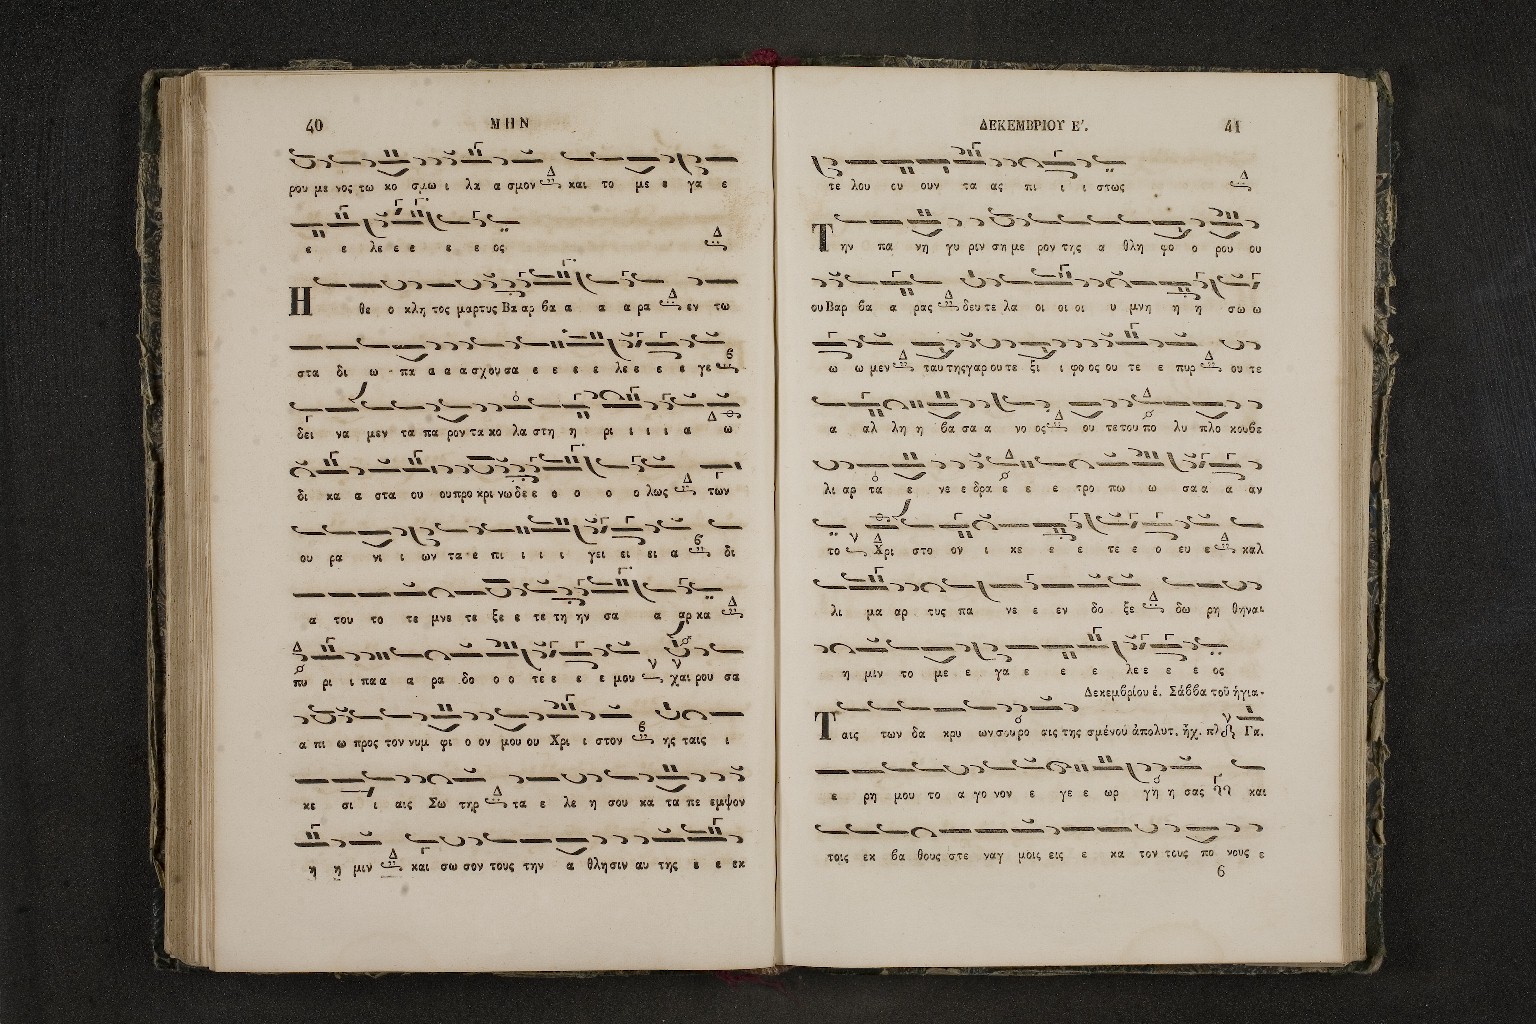 40
ΜΗΝ
ρου με νος τω κο σμω ι λα α σμον και το με ε γα ε
ε ε λε ε ε ε ε ος
Η θε ο κλη τος μαρτυς Βα αρ βα α α α ρα εν τω
στα δι ω πα α α α σχου σα ε ε ε ε λε ε ε ε γε
δει να μεν τα πα ρον τα κο λα στη η ρι ι ι ι α ω
δι κα α στα ου ου προ κρι νω δε ε ο ο ο ο λως των
ου ρα νι ι ων τα ε πι ι ι ι γει ει ει ει α δι
α του το τε μνε τε ξε ε τε τη ην σα α αρ κα
πυ ρι ι πα α α ρα δο ο ο τε ε ε ε μου χαι ρου σα
α πι ω προς τον νυμ φι ο ον μου ου Χρι ι στον ης ταις ι
κε σι ι αις Σω τηρ τα ε λε η σου κα τα πε εμψον
η η μιν και σω σον τους την α θλησιν αυ της ε ε εκ
ΔΕΚΕΜΒΡΙΟΥ Ε΄.
41
τε λου ου ουν τα ας πι ι ι στως
Την πα νη γυ ριν ση με ρον της α θλη φο ο ρου ου
ου Βαρ βα α ρας δευ τε λα οι οι οι υ μνη η η σω ω
ω ω μεν ταυ της γαρ ου τε ξι ι φο ος ου τε ε πυρ ου τε
α αλ λη η βα σα α νο ος ου τε του πο λυ πλο κου βε
λι αρ τα ε νε ε δρα ε ε ε τρο πω ω σα α α αν
το Χρι στο ον ι κε ε ε τε ε ο ευ ε καλ
λι μα αρ τυς πα νε ε εν δο ξε δω ρη θηναι
η μιν το με ε γα ε ε ε λε ε ε ε ος
Δεκεμβρίου έ. Σάββα τοῦ ἡγια-
Ταις των δα κρυ ων σου ρο αις της σμένου ἀπολυτ. ἦχ. πλ Γα.
ε ρη μου το α γο νον ε γε ε ωρ γη η σας και
τοις εκ βα θους στε ναγ μοις εις ε κα τον τους πο νους ε
6